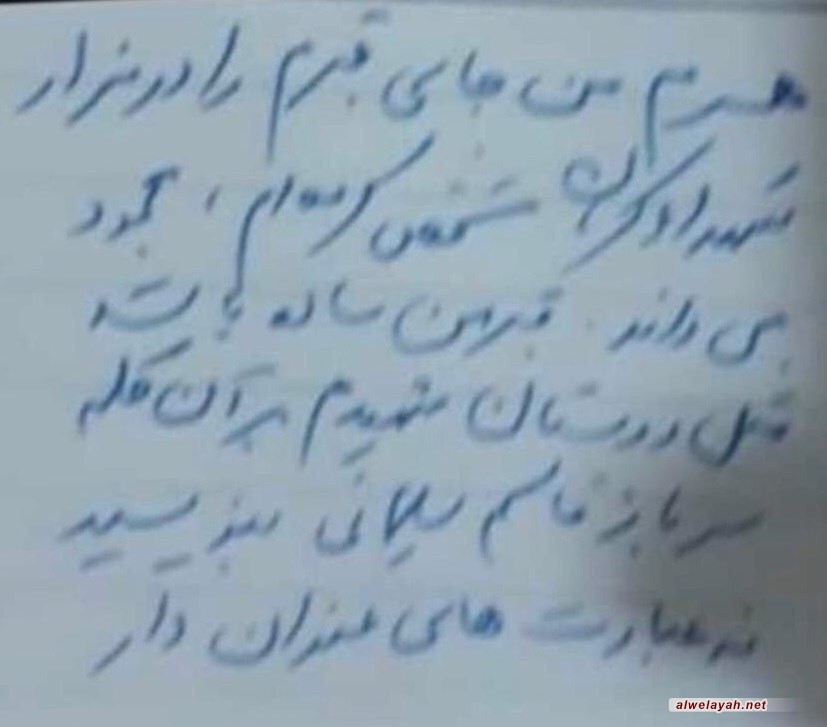 همسرم من جای قبرم را در مزار
شهدا کرمان مشخص کرده‌ام، محمود
می داند. قبر من ساده باشد
مثل دوستان شهیدم بر آن کلمه
سرباز قاسم سلیمانی بنویسید
نه عبارت های عنوان دار
alwelayah.net